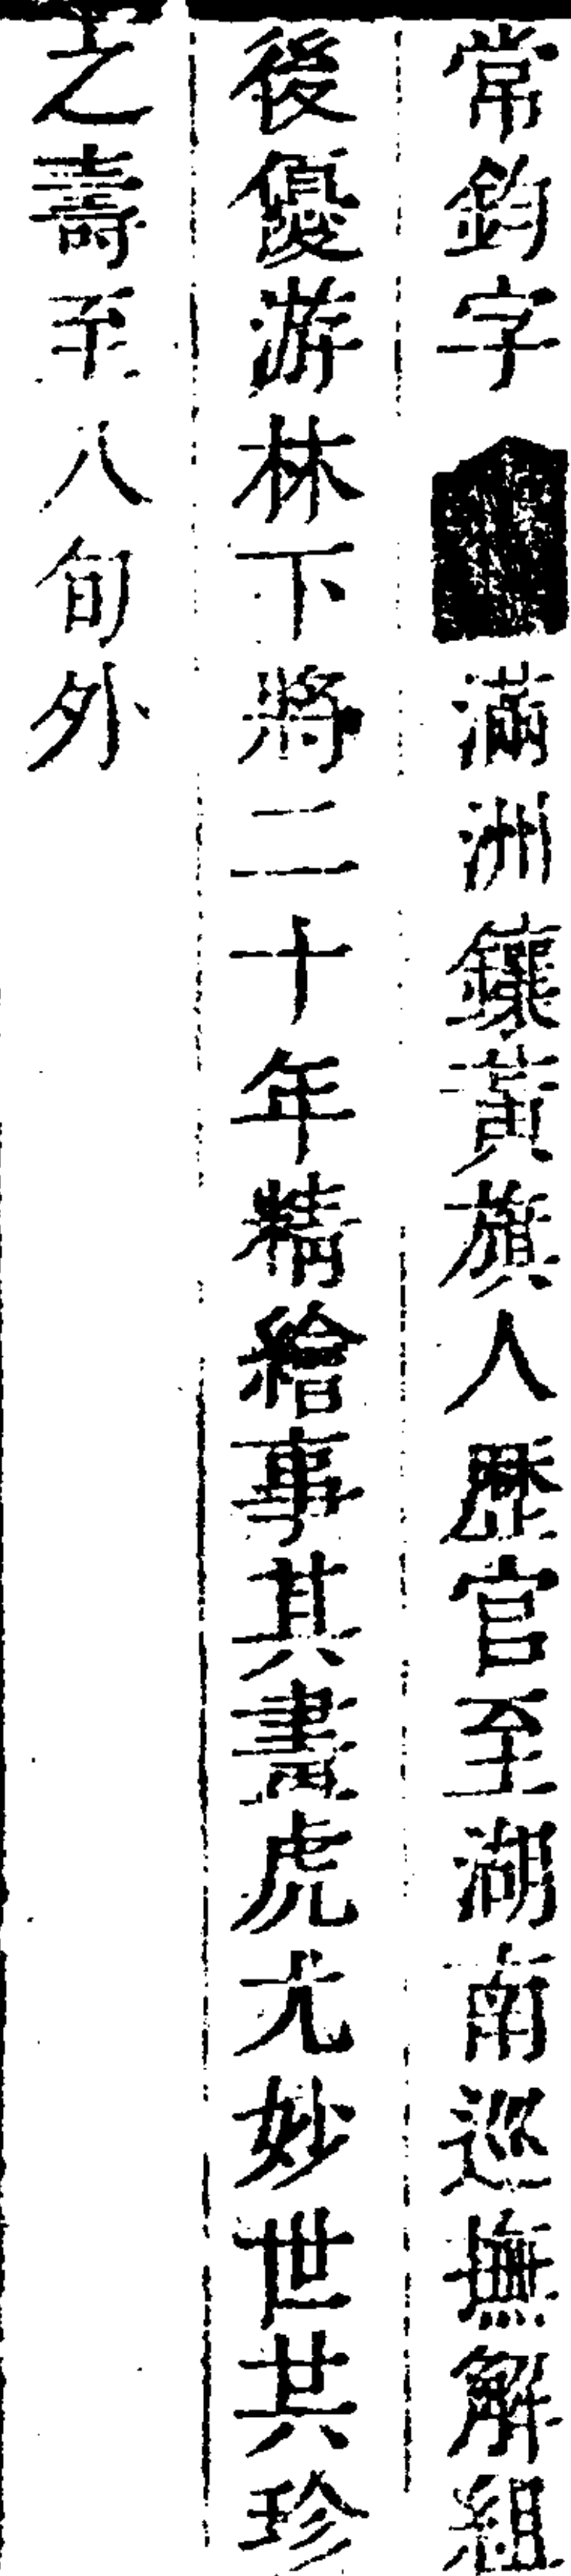 常鈞字滿洲鑲黃旗人歷官至湖南巡撫解組
後優游林下將二十年精繪事其畫虎尤妙世共珍
之壽至八旬外